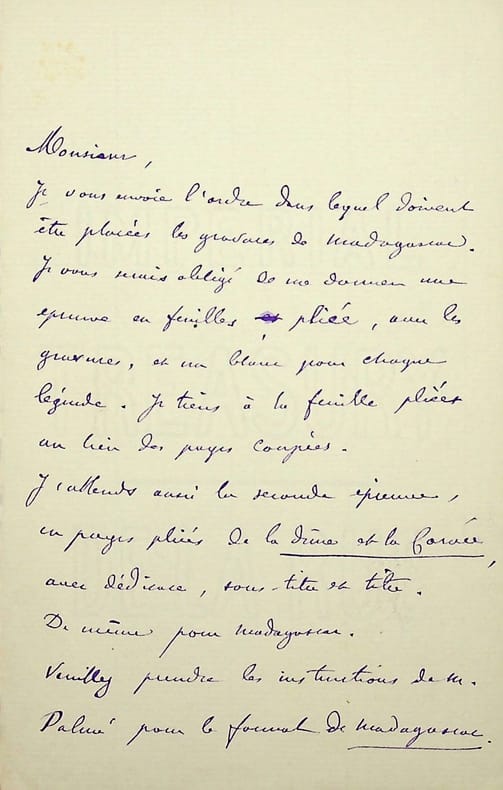 Monsieur,
Je vous envoie l'ordre dans lequel doivent
être placées les gravures de Madagascar.
Je vous serais obligé de me donner une
épreuve en feuilles pliée, avec les
gravures, et un blanc pour chaque
légende. Je tiens à la feuille pliée
au lieu des pages coupées.
J'attends aussi la seconde épreuve,
en pages pliées de la dîme et la Corvée,
avec dédicace, sous-titre et titre.
De même pour Madagascar.
Veuillez prendre les instructions de M.
Palmé pour le format de Madagascar.